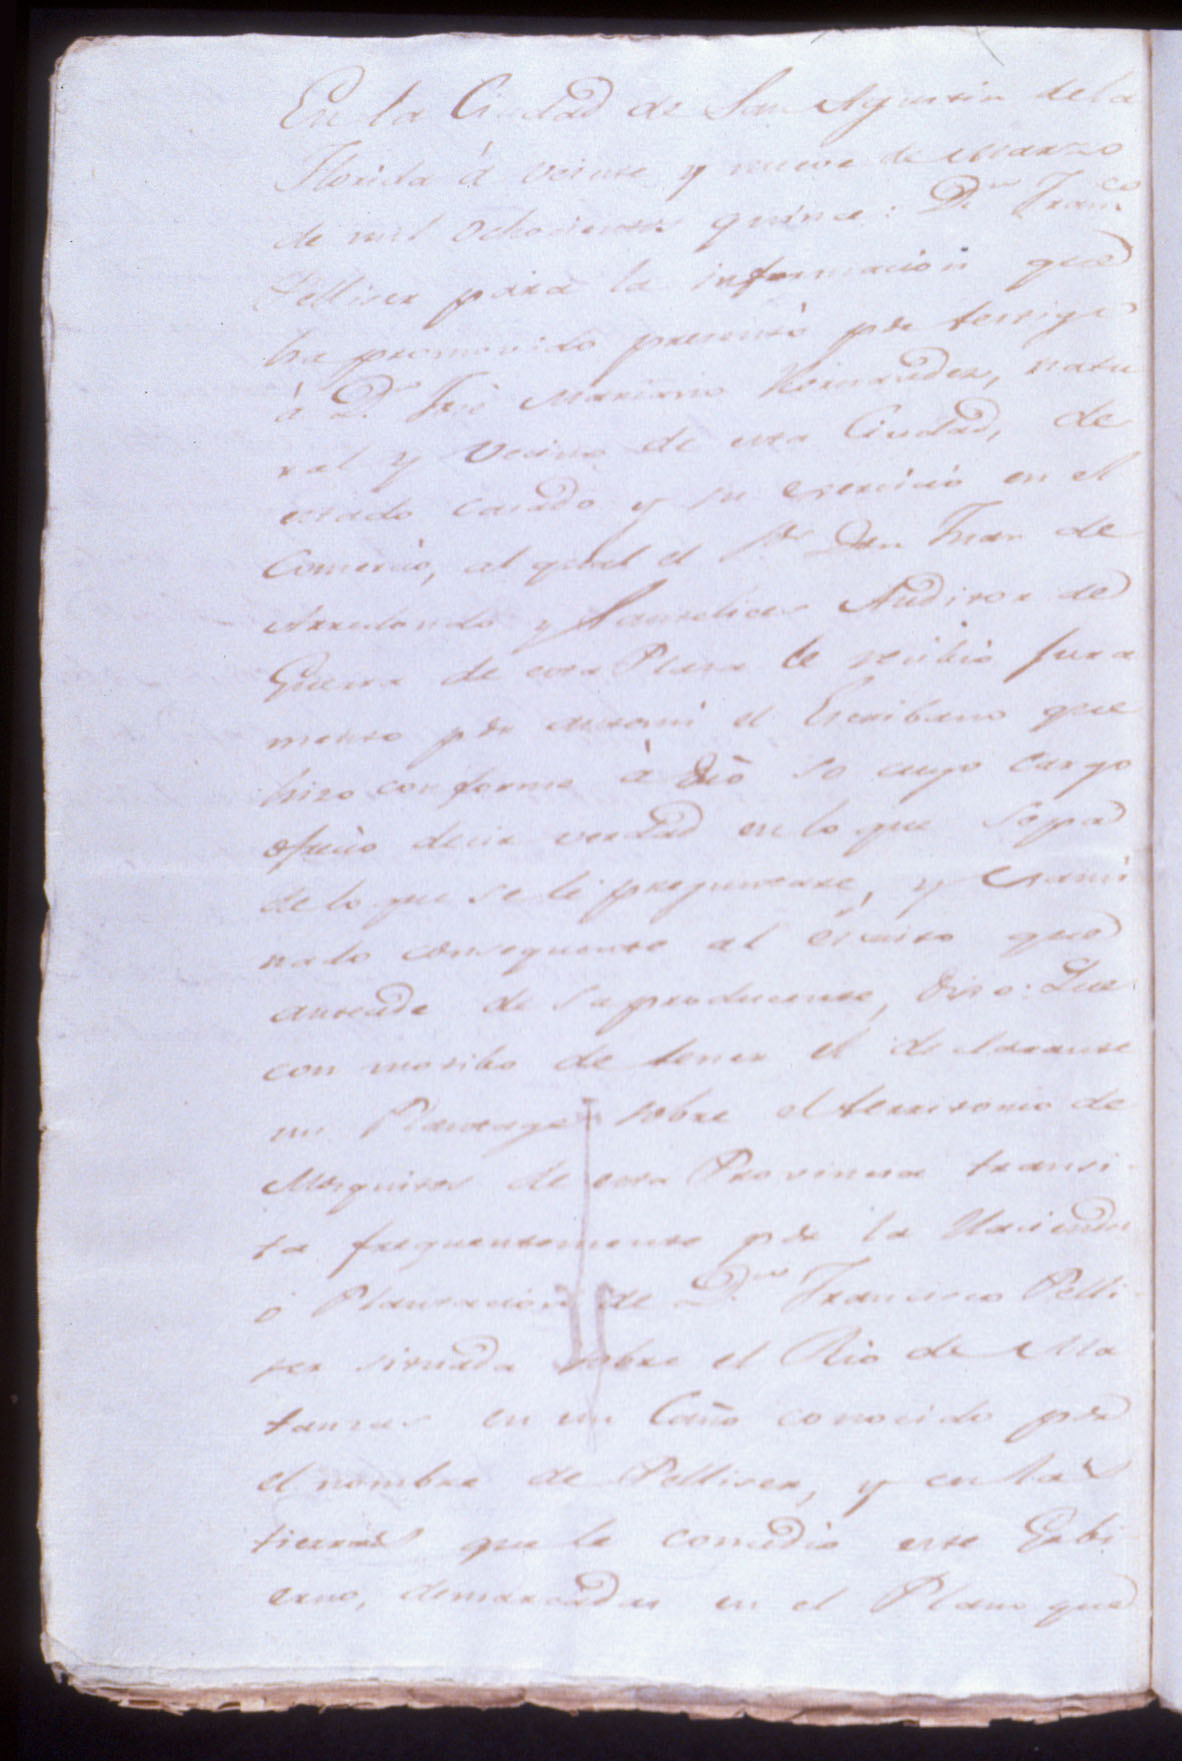 En la Ciudad de San Agustin de la
Florida á veinte y nueve de Marzo
de mil ochocientos quince: Dn Franco
Pelliser para la informacion que
ha promovido presentó por testigo
á Dn José Mariano Hernandez, natu
ral y vecino de esta Ciudad, de
estado casado y su exercicio en el
Comercio, al qual el Sor Don Juan de
Arredondo y Santelices Auditor de
Guerra de esta Plaza le recibió jura
mento por ante mi el Escribano que
hizo conforme á dro so cuyo cargo
ofreció decir verdad en lo que sepa
de lo que se le preguntare, y exami
nado consequente al escrito que
antecede de su producente, Dixo: Que
con motibo de tener el declarante
un Plantage sobre el territorio de
Mosquitos de esta Provincia transi-
ta frequentemente por la Hacienda
ó Plantacion de Dn Francisco Pelli-
ser situada sobre el Rio de Ma
tanzas en un Caño conocido por
el nombre de Pelliser, y en las
tierras que le concedió este Gobi
erno, demarcadas en el Plano que